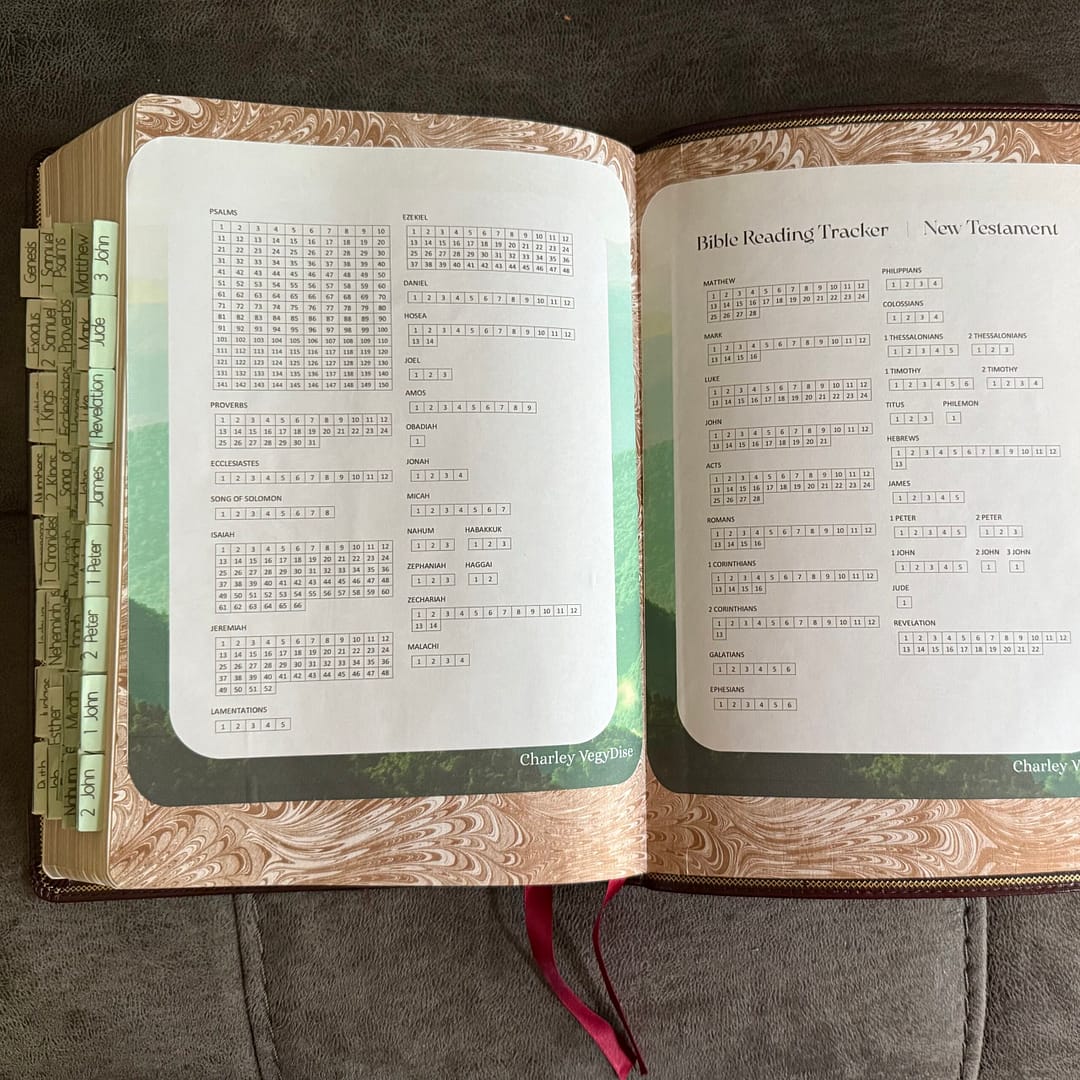 Genesis
1 Samuel
Psalms
Matthew
3 John
Exodus
2 Samuel
Proverbs
Mark
Jude
1 Kings
Ecclesiastes
Revelation
Numbers
2 Kings
Song of
James
1 Chronicles
1 Peter
Nehemiah
2 Peter
Esther
Micah
1 John
Ruth
Job
Nahum
2 John
PSALMS
1 2 3 4 5 6 7 8 9 10
11 12 13 14 15 16 17 18 19 20
21 22 23 24 25 26 27 28 29 30
31 32 33 34 35 36 37 38 39 40
41 42 43 44 45 46 47 48 49 50
51 52 53 54 55 56 57 58 59 60
61 62 63 64 65 66 67 68 69 70
71 72 73 74 75 76 77 78 79 80
81 82 83 84 85 86 87 88 89 90
91 92 93 94 95 96 97 98 99 100
101 102 103 104 105 106 107 108 109 110
111 112 113 114 115 116 117 118 119 120
121 122 123 124 125 126 127 128 129 130
131 132 133 134 135 136 137 138 139 140
141 142 143 144 145 146 147 148 149 150
PROVERBS
1 2 3 4 5 6 7 8 9 10 11 12
13 14 15 16 17 18 19 20 21 22 23 24
25 26 27 28 29 30 31
ECCLESIASTES
1 2 3 4 5 6 7 8 9 10 11 12
SONG OF SOLOMON
1 2 3 4 5 6 7 8
ISAIAH
1 2 3 4 5 6 7 8 9 10 11 12
13 14 15 16 17 18 19 20 21 22 23 24
25 26 27 28 29 30 31 32 33 34 35 36
37 38 39 40 41 42 43 44 45 46 47 48
49 50 51 52 53 54 55 56 57 58 59 60
61 62 63 64 65 66
JEREMIAH
1 2 3 4 5 6 7 8 9 10 11 12
13 14 15 16 17 18 19 20 21 22 23 24
25 26 27 28 29 30 31 32 33 34 35 36
37 38 39 40 41 42 43 44 45 46 47 48
49 50 51 52
LAMENTATIONS
1 2 3 4 5
EZEKIEL
1 2 3 4 5 6 7 8 9 10 11 12
13 14 15 16 17 18 19 20 21 22 23 24
25 26 27 28 29 30 31 32 33 34 35 36
37 38 39 40 41 42 43 44 45 46 47 48
DANIEL
1 2 3 4 5 6 7 8 9 10 11 12
HOSEA
1 2 3 4 5 6 7 8 9 10 11 12
13 14
JOEL
1 2 3
AMOS
1 2 3 4 5 6 7 8 9
OBADIAH
1
JONAH
1 2 3 4
MICAH
1 2 3 4 5 6 7
NAHUM HABAKKUK
1 2 3 1 2 3
ZEPHANIAH HAGGAI
1 2 3 1 2
ZECHARIAH
1 2 3 4 5 6 7 8 9 10 11 12
13 14
MALACHI
1 2 3 4
Charley VegyDise
Bible Reading Tracker | New Testament
MATTHEW
1 2 3 4 5 6 7 8 9 10 11 12
13 14 15 16 17 18 19 20 21 22 23 24
25 26 27 28
MARK
1 2 3 4 5 6 7 8 9 10 11 12
13 14 15 16
LUKE
1 2 3 4 5 6 7 8 9 10 11 12
13 14 15 16 17 18 19 20 21 22 23 24
JOHN
1 2 3 4 5 6 7 8 9 10 11 12
13 14 15 16 17 18 19 20 21
ACTS
1 2 3 4 5 6 7 8 9 10 11 12
13 14 15 16 17 18 19 20 21 22 23 24
25 26 27 28
ROMANS
1 2 3 4 5 6 7 8 9 10 11 12
13 14 15 16
1 CORINTHIANS
1 2 3 4 5 6 7 8 9 10 11 12
13 14 15 16
2 CORINTHIANS
1 2 3 4 5 6 7 8 9 10 11 12
13
GALATIANS
1 2 3 4 5 6
EPHESIANS
1 2 3 4 5 6
PHILIPPIANS
1 2 3 4
COLOSSIANS
1 2 3 4
1 THESSALONIANS 2 THESSALONIANS
1 2 3 4 5 1 2 3
1 TIMOTHY 2 TIMOTHY
1 2 3 4 5 6 1 2 3 4
TITUS PHILEMON
1 2 3 1
HEBREWS
1 2 3 4 5 6 7 8 9 10 11 12
13
JAMES
1 2 3 4 5
1 PETER 2 PETER
1 2 3 4 5 1 2 3
1 JOHN 2 JOHN 3 JOHN
1 2 3 4 5 1 1
JUDE
1
REVELATION
1 2 3 4 5 6 7 8 9 10 11 12
13 14 15 16 17 18 19 20 21 22
Charley V